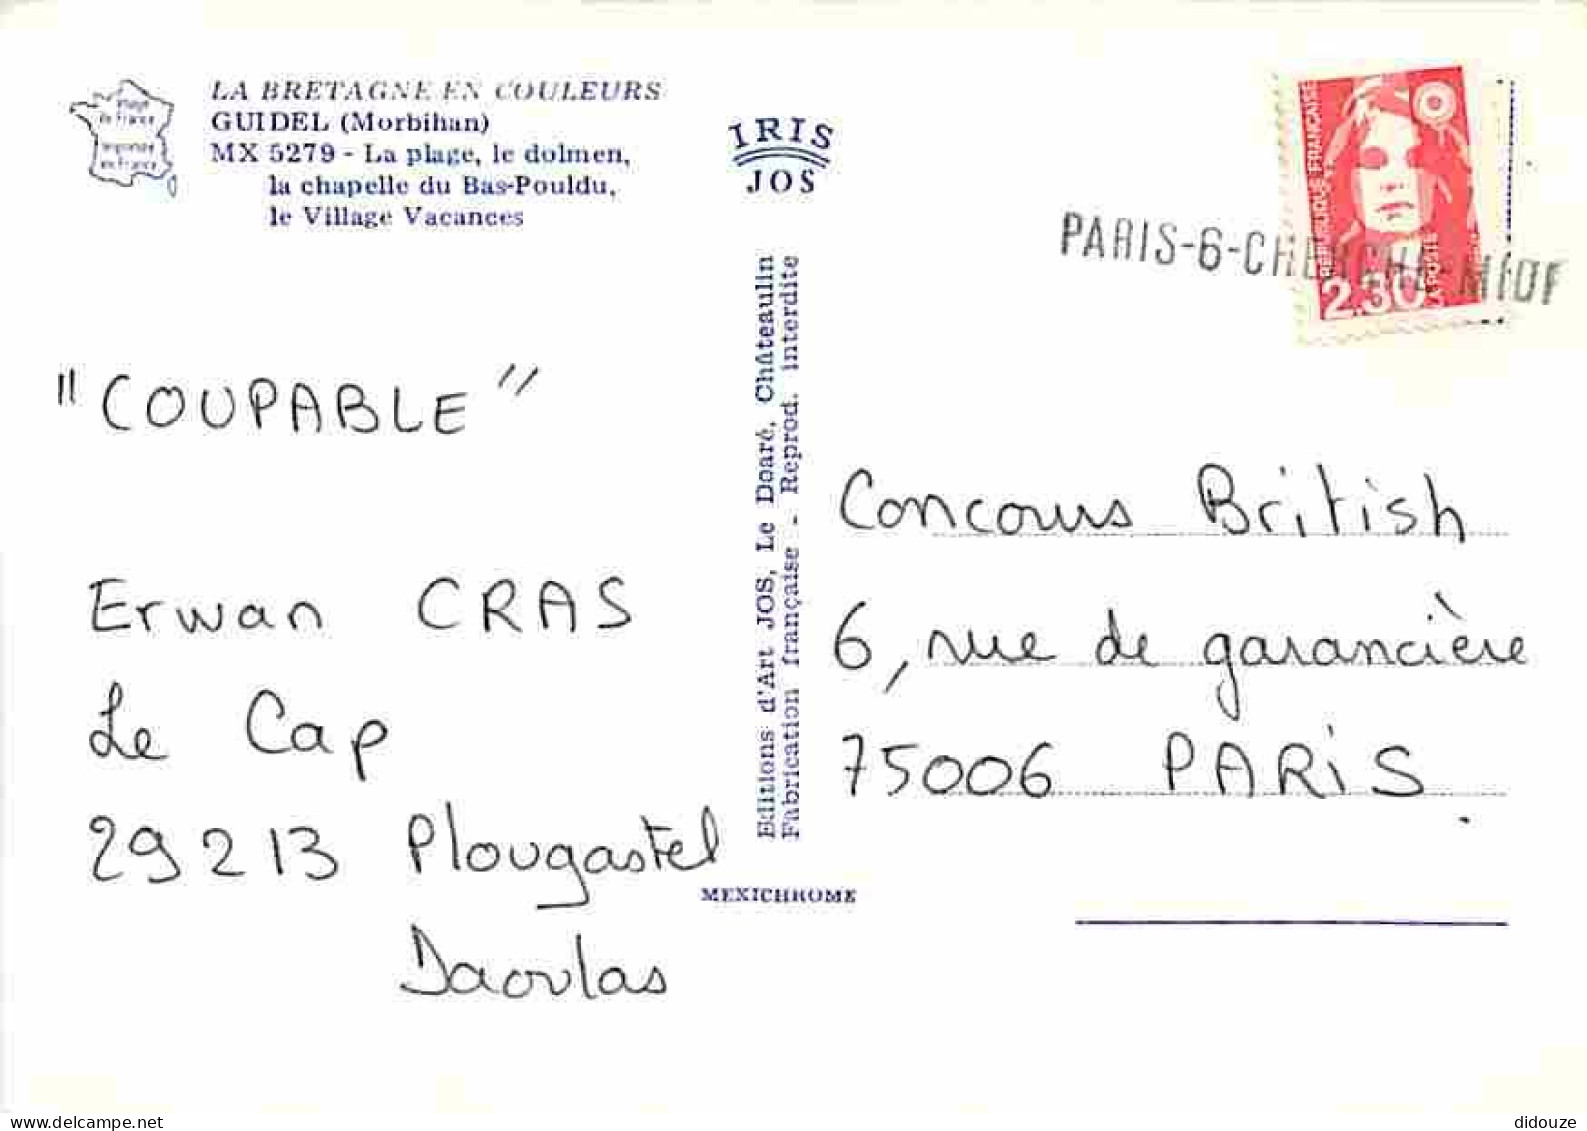 LA BRETAGNE EN COULEURS
GUIDEL (Morbihan)
MX 5279 - La plage, le dolmen,
la chapelle du Bas-Pouldu,
le Village Vacances
Image
de France
Imprimée
en France
IRIS
JOS
REPUBLIQUE FRANÇAISE
LA POSTE
2.30
PARIS-6-CHERCHE-MIDI
"COUPABLE"
Erwan CRAS
Le Cap
29213 Plougastel
Daoulas
Editions d'Art JOS, Le Doaré, Châteaulin
Fabrication française - Reprod. interdite
MEXICHROME
Concours British
6, rue de garancière
75006 PARIS.
delcampe.net
didouze